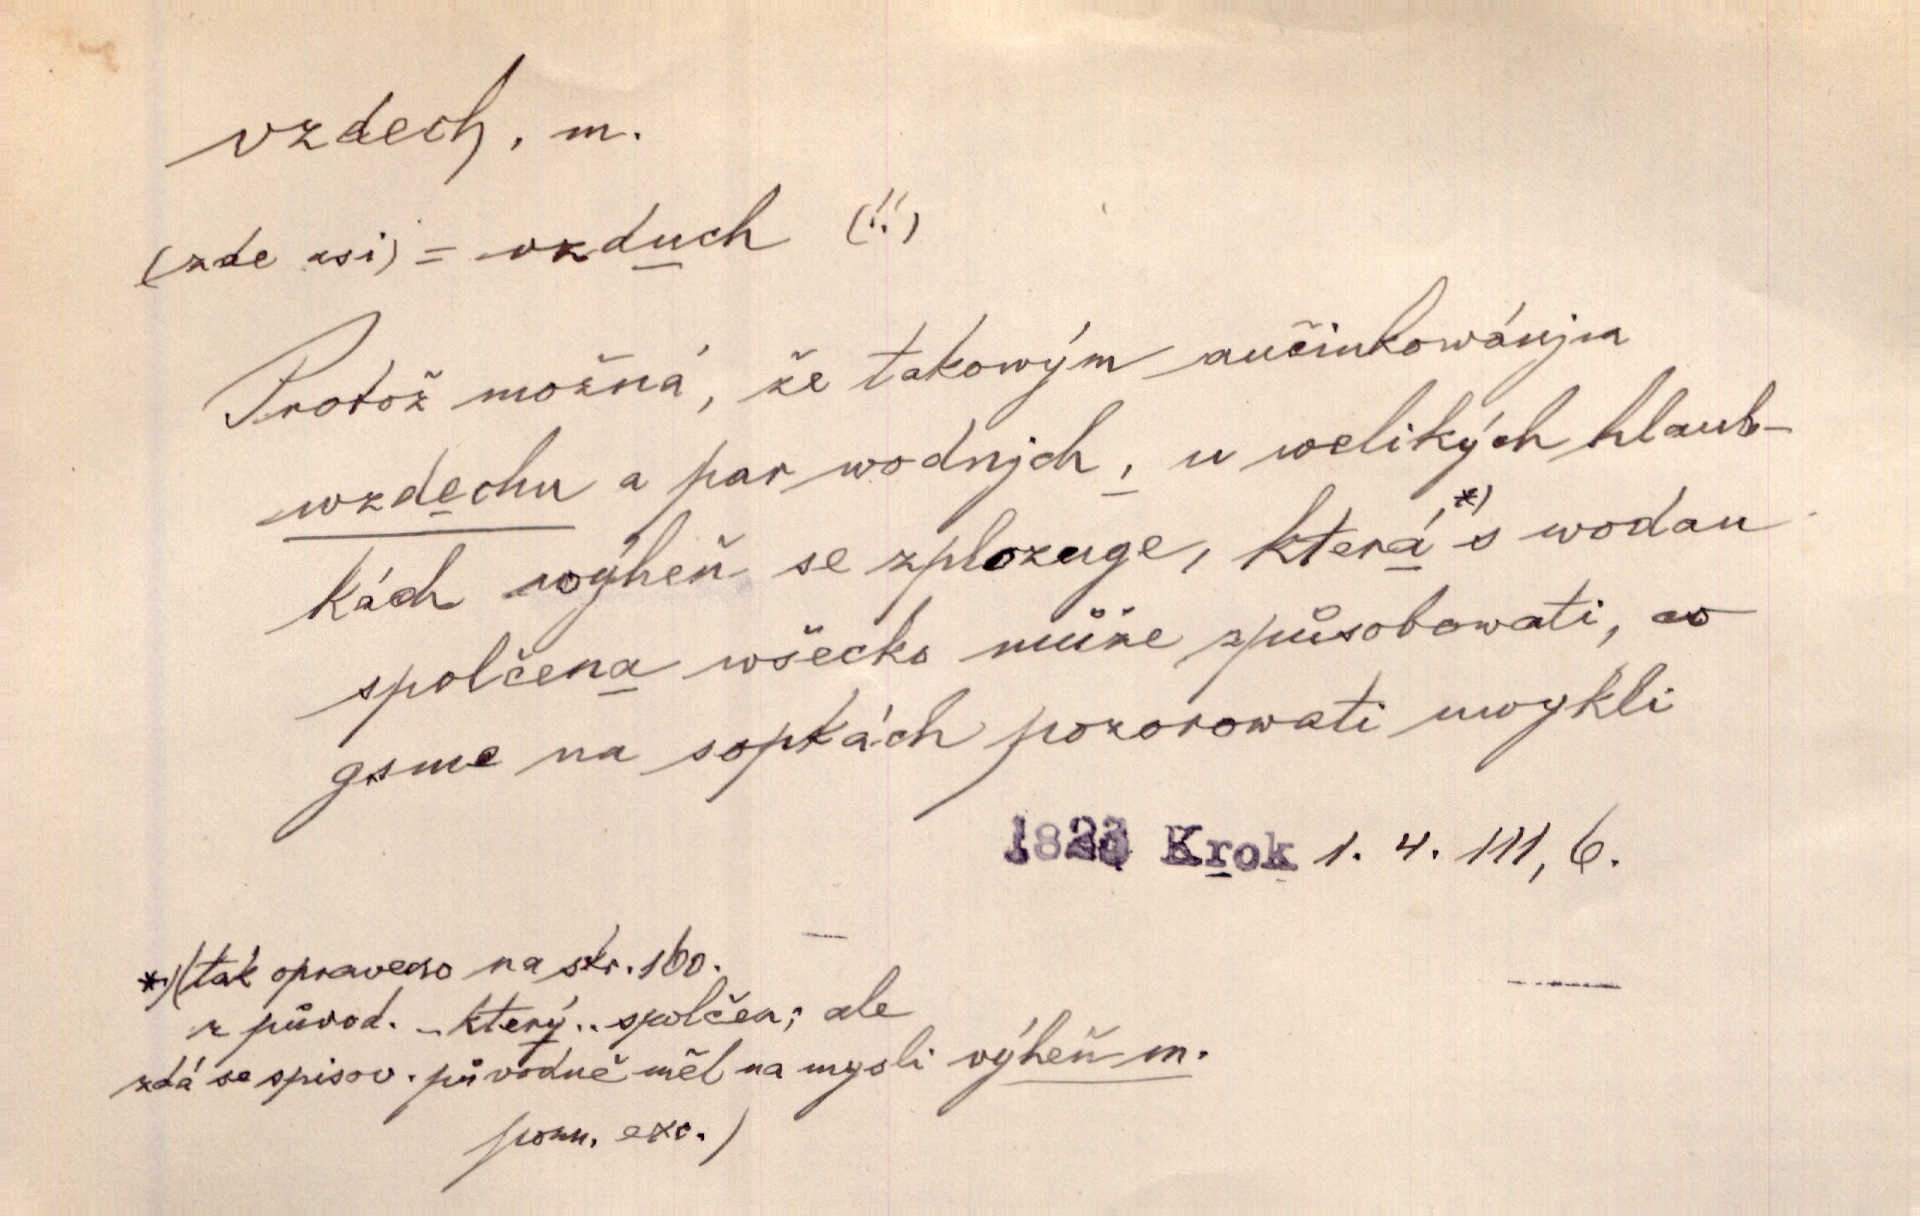 vzdech, m.
(zde asi) = vzduch (!!)
Protož možná, že takowým aučinkowánjm
wzdechu a par wodnjch, u welikých hlaub-
kách wýheň se zplozuge, která*) s wodau
spolčena wšecko může způsobowati, co
gsme na sopkách pozorowati uwykli
Krok 1. 4. III, 6.
*) (tak opraveno na str. 160.
z původ. – který .. spolčen; ale
zdá se spisov. původně měl na mysli výheň m.
pozn. exc.)